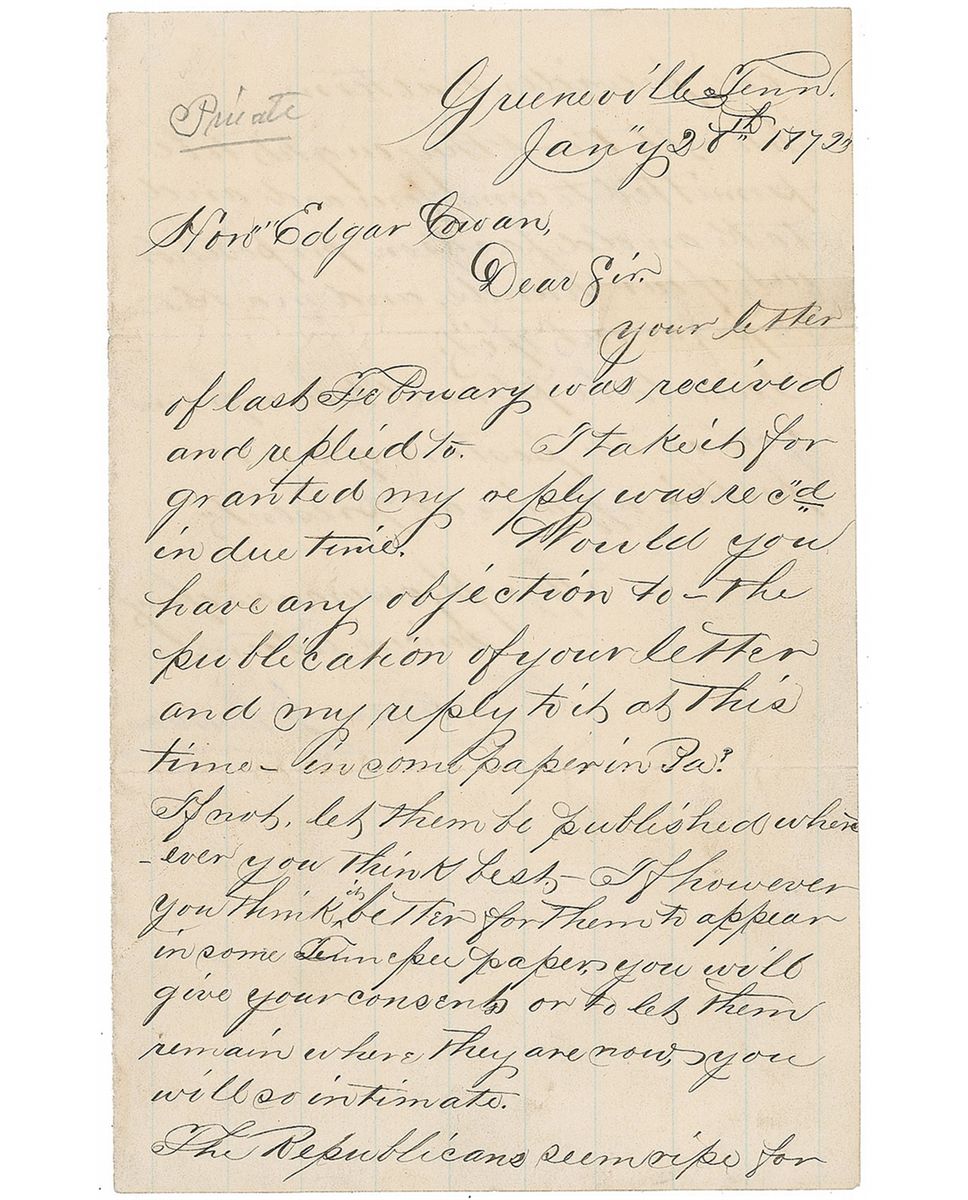 Private
Greeneville Tenn.
Jan'y 28th 1872
Hon" Edgar Cowan,
Dear Sir.
your letter
of last February was received
and replied to. I take it for
granted my reply was rec"d
in due time. Would you
have any objection to – the
publication of your letter
and my reply to it at this
time – in some paper in Pa?
If not, let them be published when
-ever you think best – If however
you think it better for them to appear
in some Tennessee paper, you will
give your consent, or to let them
remain where they are now, you
will so intimate.
The Republicans seem ripe for